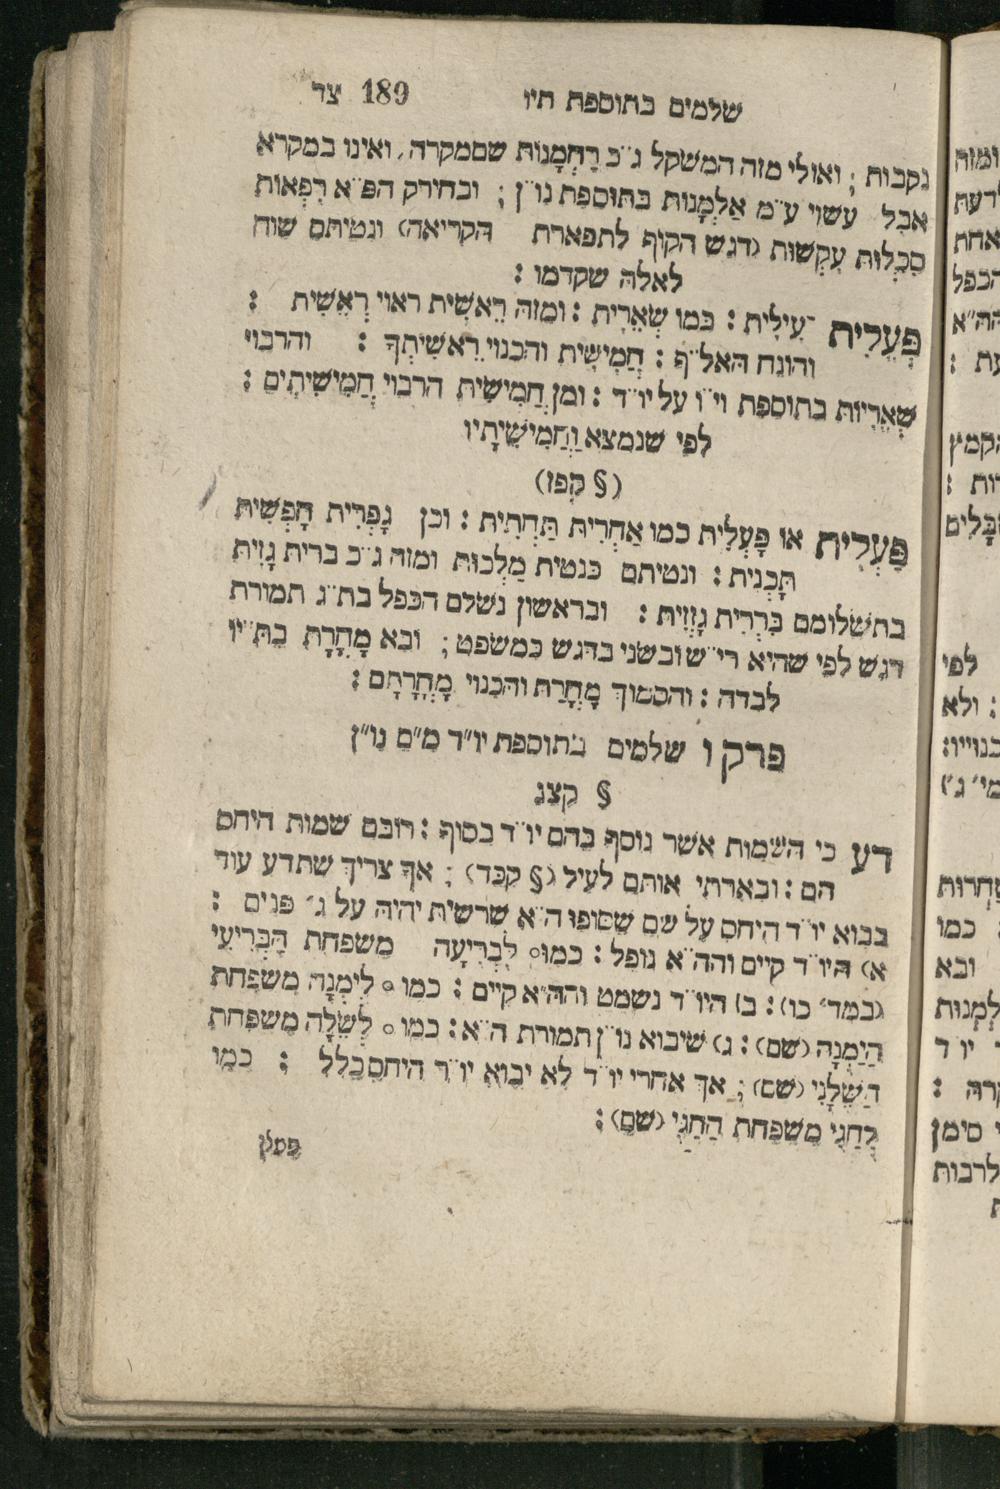 שלמים בתוספת תיו 189 צד
נקבות ; ואולי מזה המשקל ג״כ רַחֲמָנוֹת שםמקרה, ואינו במקרא
אבל עשוי ע״מ אַלְמָנוֹת בתוספת נו״ן ; ובחירק הפ״א רִפְאוֹת
סִכְלוּת עִקְשׁוּת (דגש הקוף לתפארת הקריאה) ונטיתם שוה
לאלה שקדמו :
פְּעֵלִית ־עִילִית : כמו שְׁאֵרִית : ומזה רֵאשִׁית ראוי רְאֵשִׁית :
והונח האל״ף : חֲמִישִׁית והכנוי רֵאשִׁיתְךָ : והרבוי
שְׁאֵרִיּוֹת בתוספת וי״ו על יו״ד : ומן חֲמִישִׁית הרבוי חֲמִישִׁיתִים :
לפי שנמצא וַחֲמִישִׁיתָיו
(§ קפז)
פַּעְלִית או פָּעְלִית כמו אַחְרִית תַּחְתִית : וכן גָפְרִית חָפְשִׁית
תָּכְנִית : ונטיתם כנטית מַלְכוּת ומזה ג״כ ברית גָזִית
בתשלומם בְּרְרִית גָזְזִית : ובראשון נשלם הכפל בת״ג תמורת
דגש לפי שהיא רי״ש ובשני בדגש כמשפט ; ובא מָחֳרָת בת״יו
לבדה : והסמוך מָחֳרַת והכנוי מָחֳרָתָם :
פרק ו שלמים בתוספת יו״ד מ״ם נו״ן
§ קצג
דע כי השמות אשר נוסף בהם יו״ד בסוף : רובם שמות היחס
הם : ובארתי אותם לעיל (§ קכד) ; אך צריך שתדע עוד
בבוא יו״ד היחס על שם שסופו ה״א שרשית יהיה על ג׳ פנים :
א) היו״ד קיים והה״א נופל : כמו ∘ לִבְרִיעָה משפחת הַבְּרִיעִי
(במד׳ כו) : ב) היו״ד נשמט והה״א קיים : כמו ∘ לְיִמְנָה משפחת
הַיִּמְנָה (שם) : ג) שיבוא נו״ן תמורת ה״א : כמו ∘ לְשֵׁלָה משפחת
הַשֵּׁלָנִי (שם) ; אך אחרי יו״ד לא יבוא יו״ד היחס כלל ; כמו
לְחַגִּי משפחת הַחַגִּי (שם) :
פעל